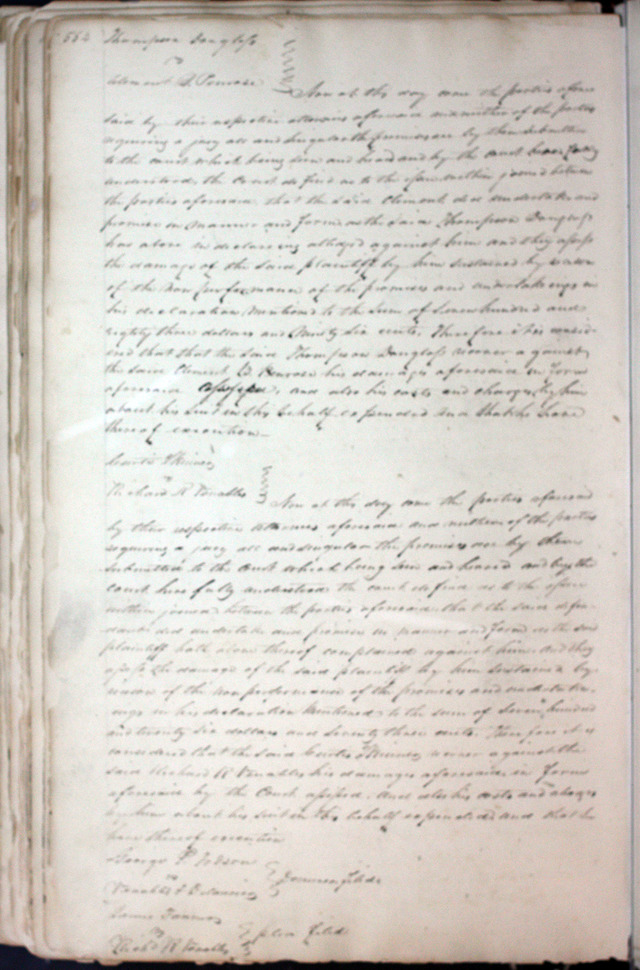 552 Thompson Douglass
vs
Clement B. Penrose
Now at this day come the parties afore
said by their respective attornies aforesaid and neither of the parties
requiring a jury all and singular the premises are by them submitted
to the court which being seen and heard and by the court here fully
understood, the Court do find as to the issue within joined between
the parties aforesaid that the said Clement did undertake and
promise in manner and form as the said Thompson Douglass
has above in declaring alledged against him and they assess
the damage of the said plaintiff by him sustained by reason
of the non performance of the promises and undertakings in
his declaration mentioned to the sum of Seven hundred and
eighty three dollars and Ninety Six cents. Therefore it is consid-
ered that that the said Thompson Douglass recover against
the said Clement B. Penrose his damages aforesaid in form
aforesaid assessed, and also his costs and charges by him
about his suit in this behalf expended and that he have
thereof execution
vs
Richard R Venables
Now at this day come the parties aforesaid
by their respective attornies aforesaid and neither of the parties
requiring a jury all and singular the premises are by them
submitted to the court which being seen and heard and by the
court here fully understood the court do find as to the issue
within joined between the parties aforesaid that the said defen-
dant did undertake and promise in manner and form as the said
plaintiff hath above thereof complained against him. And they
assess the damage of the said plaintiff by him sustained by
reason of the non performance of the promises and undertak-
ings in his declaration mentioned to the sum of Seven hundred
and twenty Six dollars and Seventy three cents. Therefore it is
considered that the said recover against the
said Richard R Venables his damages aforesaid in form
aforesaid by the Court assessed. And also his costs and charges
by him about his suit in this behalf expended and that he
have thereof execution
George
vs
Venables filed
James
vs plea filed
Richd R Venables